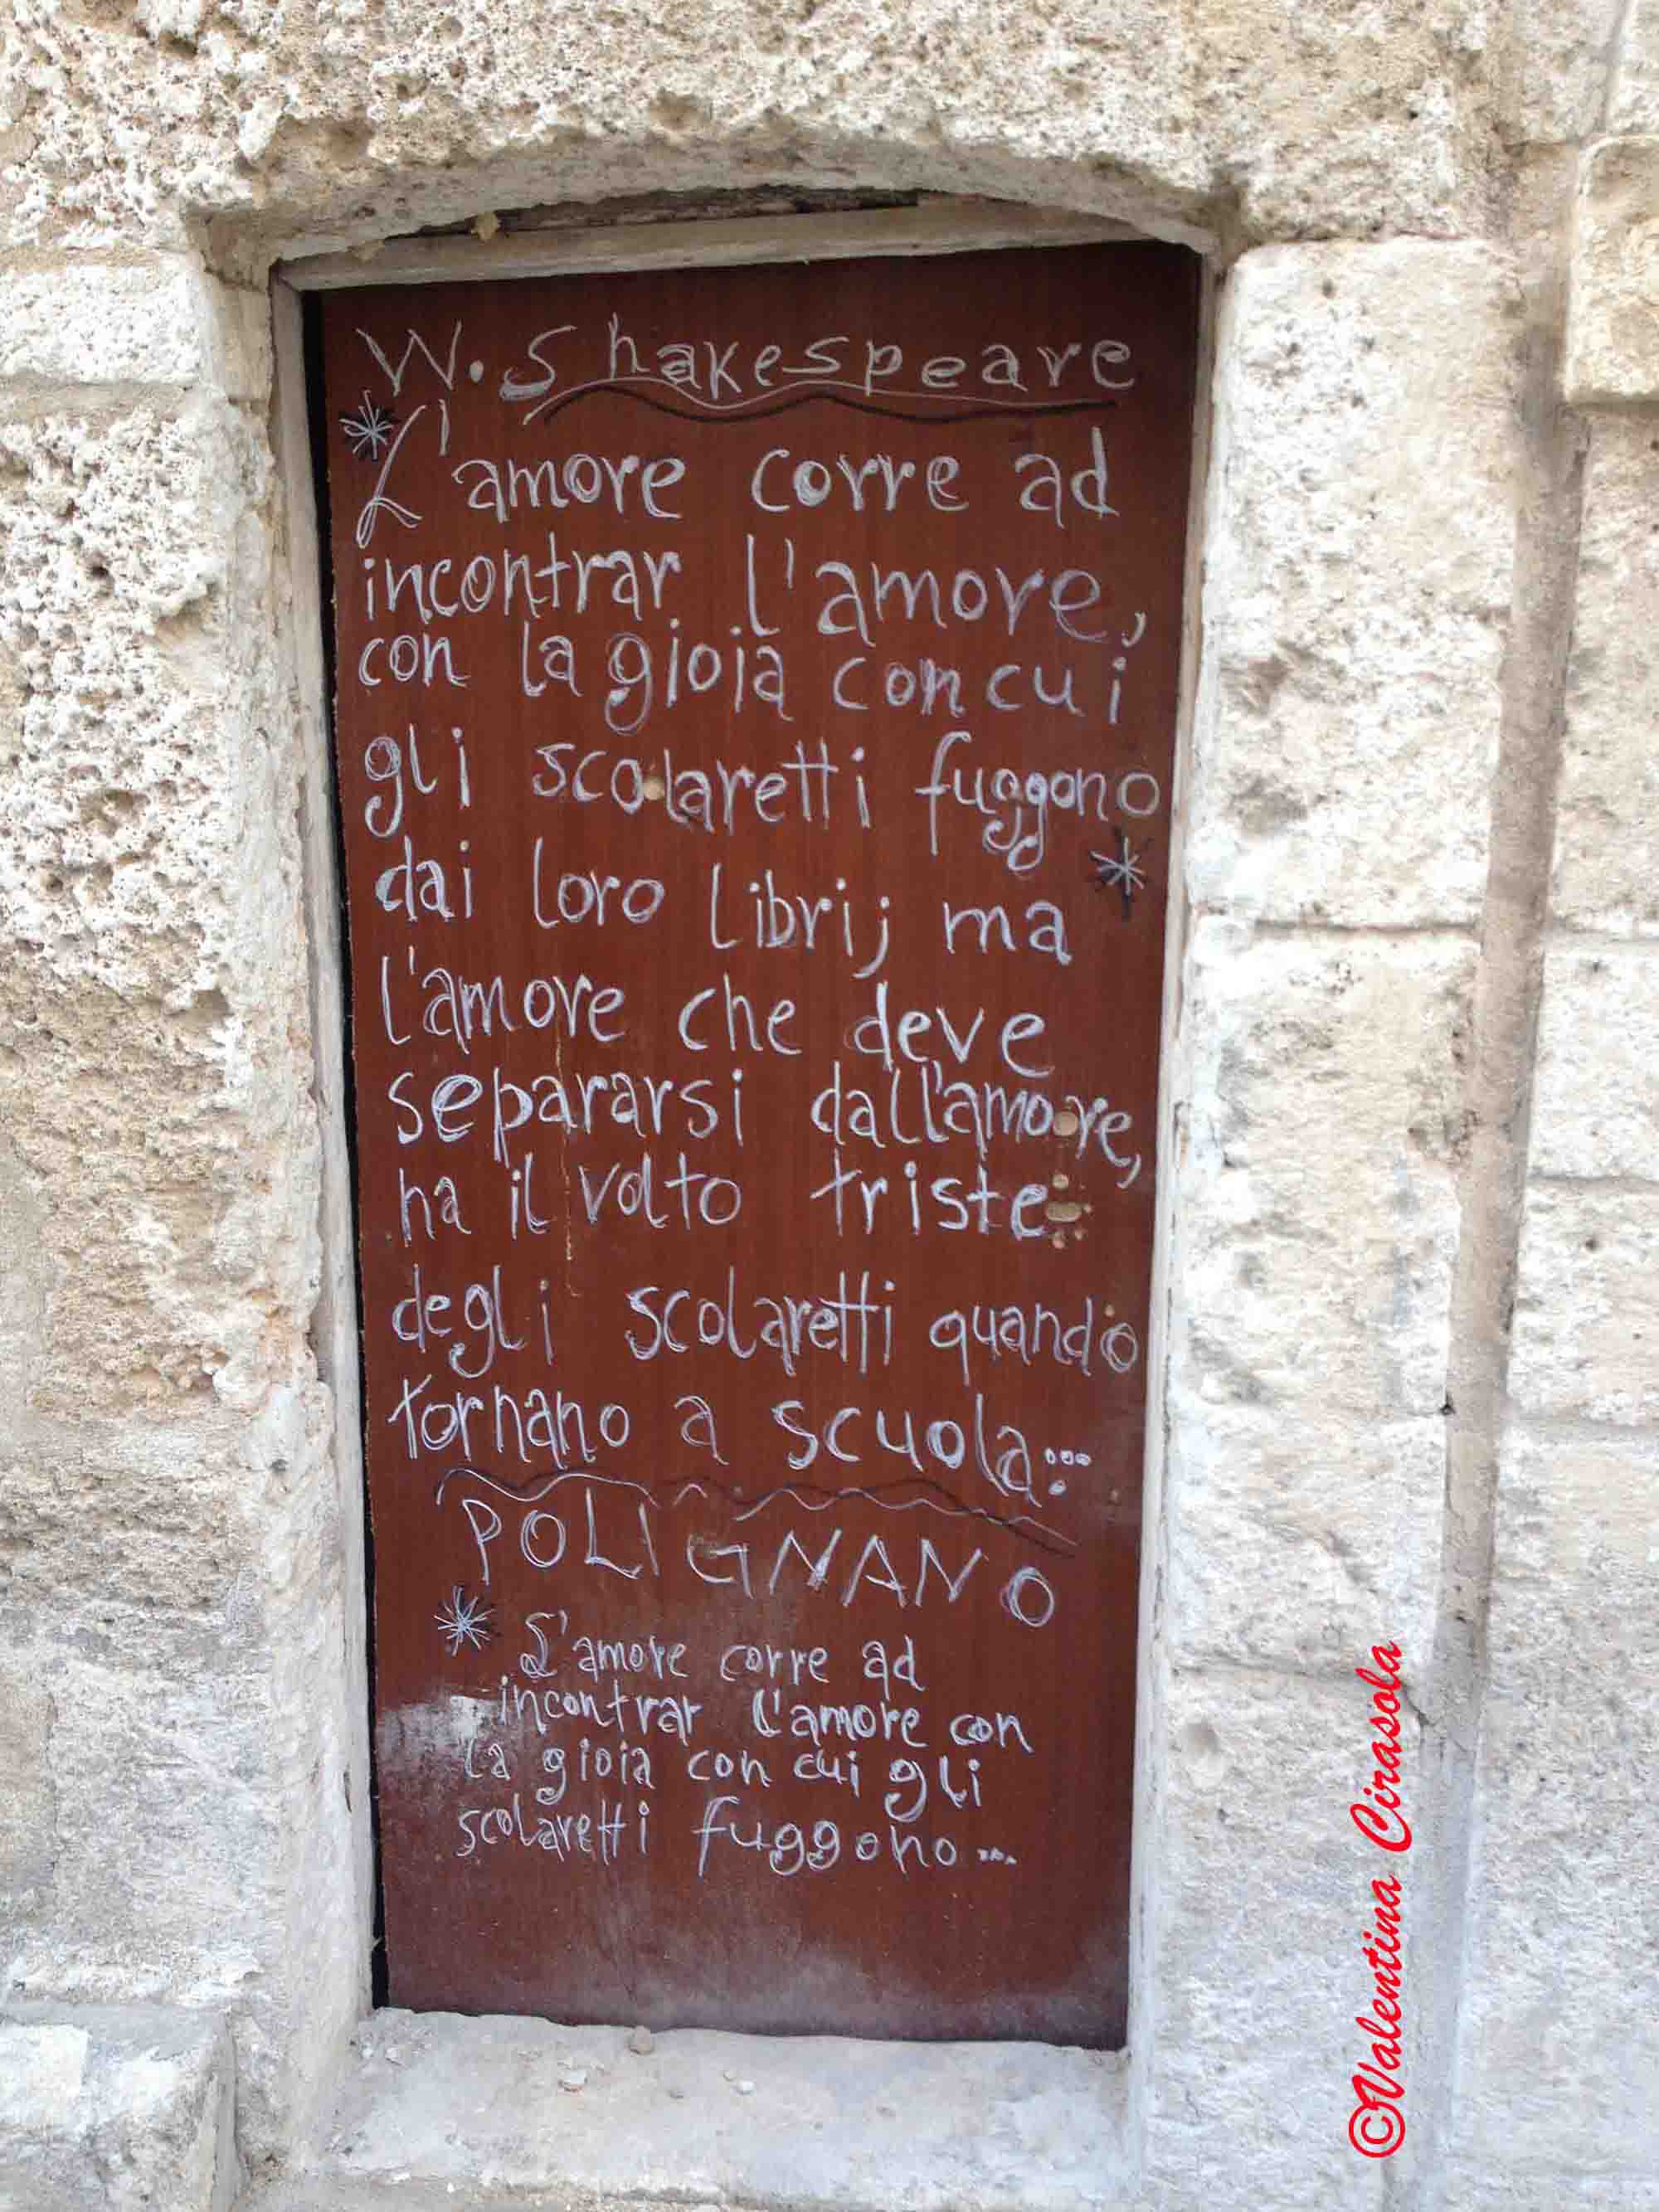 W. Shakespeare
L'amore corre ad
incontrar l'amore,
con la gioia con cui
gli scolaretti fuggono
dai loro libri, ma
l'amore che deve
separarsi dall'amore,
ha il volto triste
degli scolaretti quando
tornano a scuola...
POLIGNANO
L'amore corre ad
incontrar l'amore con
la gioia con cui gli
scolaretti fuggono...
©Valentina Cirasola